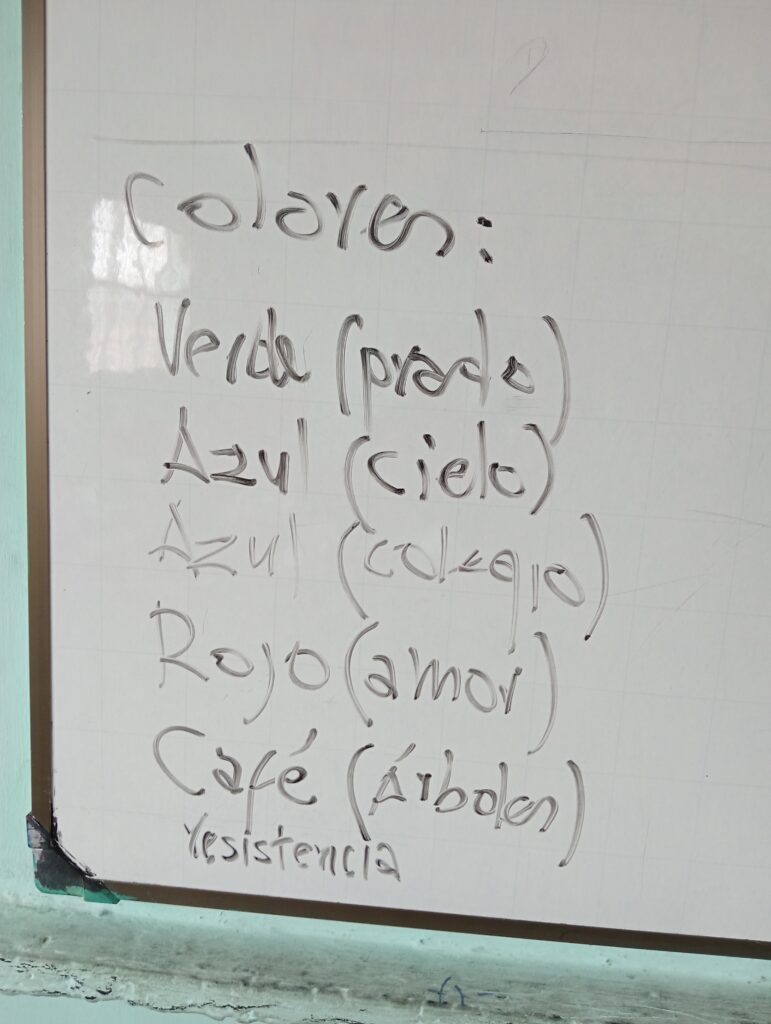 Colores:
Verde (prado)
Azul (cielo)
Azul (colegio)
Rojo (amor)
Café (Árboles)
resistencia